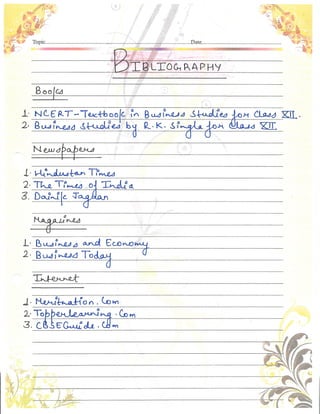 Topic Date
BIBLIOGRAPHY
Books
1. NCERT - Textbook in Business Studies for Class XII.
2. Business Studies by R.K. Singla for Class XII.
Newspapers
1. Hindustan Times
2. The Times of India
3. Dainik Jagran
Magazines
1. Business and Economy
2. Business Today
Internet
1. Meritnation.Com
2. Topperlearning.Com
3. CBSEGuide.Com